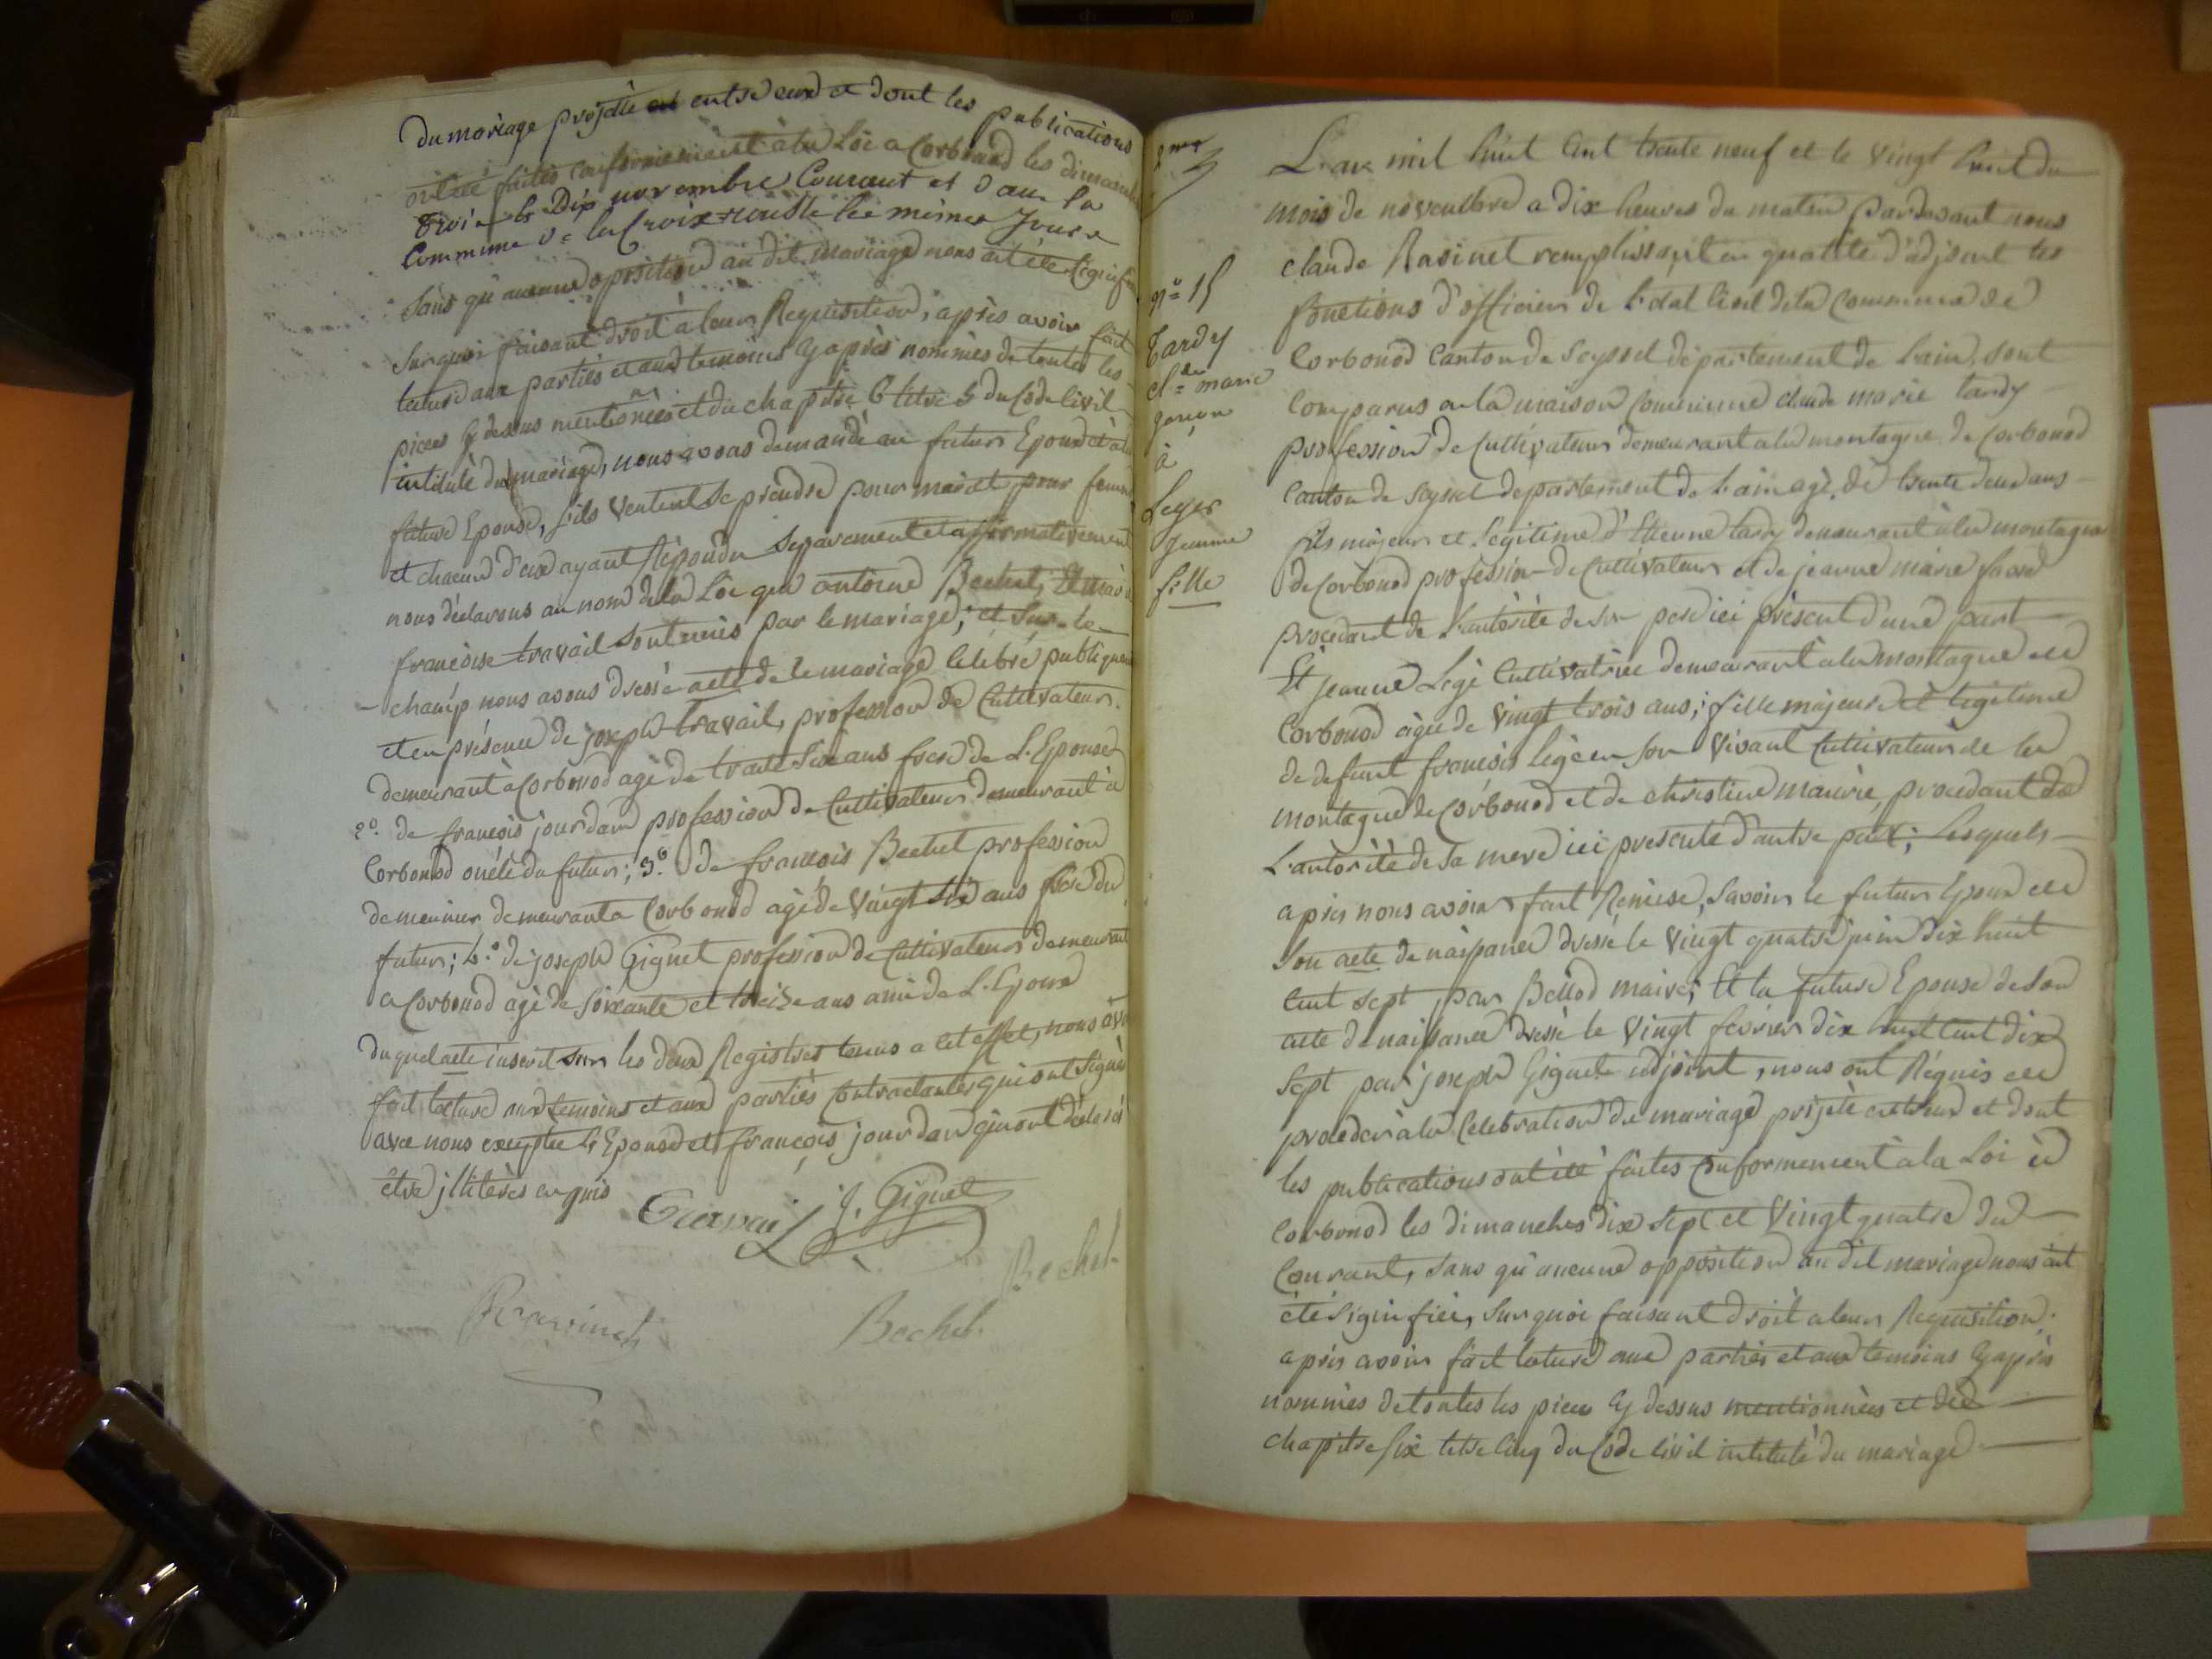 du mariage projetté entre eux et dont les publications
ont été faites conformement à la Loi a Corbonod les dimanches
trois et Dix novembre Courant et dans la
Commune de la Croix-rousse les mêmes Jours
sans qu'aucune oposition au dit mariage nous ait été signifiée
sur quoi faisant droit à leur Requisition, après avoir fait
lecture aux parties et aux temoins cy après nommés de toutes les
pieces cy dessus mentionées et du chapitre 6 titre 5 du Code Civil
intitulé du mariage, nous avons demandé au futur Epoux et à la
future Epouse, s'ils veulent se prendre pour mari et pour femme
et chacun d'eux ayant Répondu séparement et affirmativement
nous déclarons au nom de la Loi que antoine Bechet, et
françoise travail sont unis par le mariage; et sur-le-
-champ nous avons dressé acte de le mariage Célébré publiquement
et en présence de joseph travail, profession de Cultivateur
demeurant à Corbonod agé de trente six ans frere de L'Epouse
2º. de françois jourdan profession de Cultivateur demeurant à
Corbonod oncle du futur; 3º. de françois Bechet profession
de meunier demeurant a Corbonod agé de vingt six ans frere du
futur; 4º. de joseph Giguet profession de Cultivateur demeurant
a Corbonod agé de soixante et treize ans ami de L'Epoux
du quel acte inscrit sur les deux Registres tenus a cet effet, nous avons
fait lecture aux temoins et aux parties Contractantes qui ont signé
avec nous exceptée L'Epouse et françois jourdan qui ont déclaré
etre jllitérés enquis
Travail J. Giguet
Bechet
Bechet.
nº 15
Tardy
Cl.de marie
garçon
à
Leger
Jeanne
fille
L'an mil huit Cent trente neuf et le vingt huit du
mois de novembre a dix heures du matin pardevant nous
claude Ravinet remplissant en qualité d'adjoint les
fonctions d'officier de L'état Civil de la Commune de
Corbonod Canton de Seyssel département de L'ain, sont
Comparus en la maison Commune claude marie tardy
profession de Cultivateur demeurant a la montagne de Corbonod
Canton de Seyssel departement de L'ain agé de trente deux ans
fils majeur et Legitime d'Etienne tardy demeurant à la montagne
de Corbonod profession de Cultivateur et de jeanne marie
procedant de L'autorité de son pere ici présent d'une part
Et jeanne Legé Cultivatrice demeurant a la montagne de
Corbonod agée de vingt trois ans; fille majeure et legitime
de defunt françois legé en son vivant Cultivateur de la
montagne de Corbonod et de christine mairie, procedant de
L'autorité de sa mere ici presente d'autre part; Lesquels
après nous avoir fait Remise, savoir le futur Epoux de
son acte de naissance dressé le vingt quatre juin dix huit
Cent sept par Bellod maire; Et la future Epouse de son
acte de naissance dressé le vingt fevrier dix huit cent dix
sept par joseph Giguet adjoint, nous ont Réquis de
proceder à la Celebration du mariage projeté entr'eux et dont
les publications ont été faites Conformement à la Loi à
Corbonod les dimanches dix sept et vingt quatre du
Courant, sans qu'aucune opposition au dit mariage nous ait
été signifiée, sur quoi faisant droit a leur Requisition
après avoir fait lecture aux parties et aux temoins cy après
nommés de toutes les pieces cy dessus mentionnées et du
chapitre six titre Cinq du Code Civil intitulé du mariage